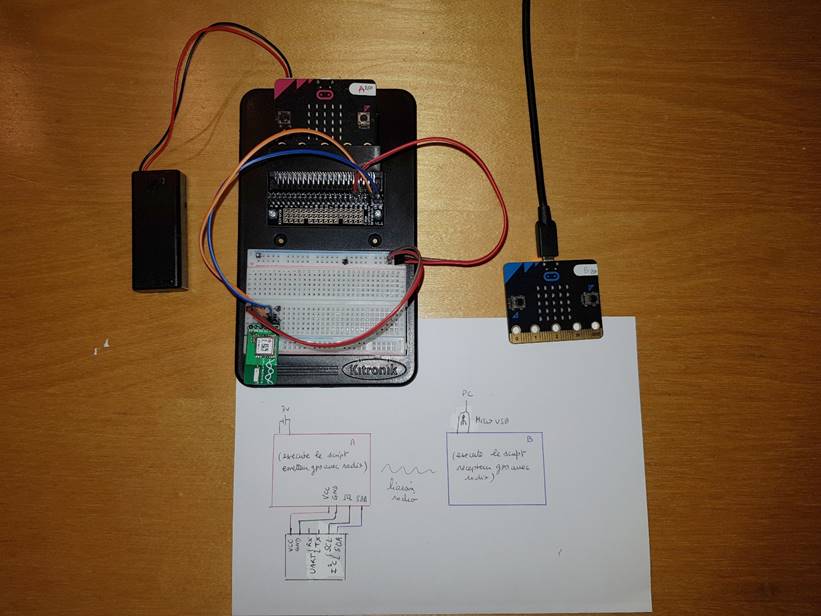 A
Kitronik
3V
A
(execute le script
emetteur gps avec radio)
VCC
GND
SCL
SDA
liaison
radio
PC
Micro USB
B
(execute le script
recepteur gps avec
radio)
VCC
GND
UART RX
TX
I²C SCL
SDA